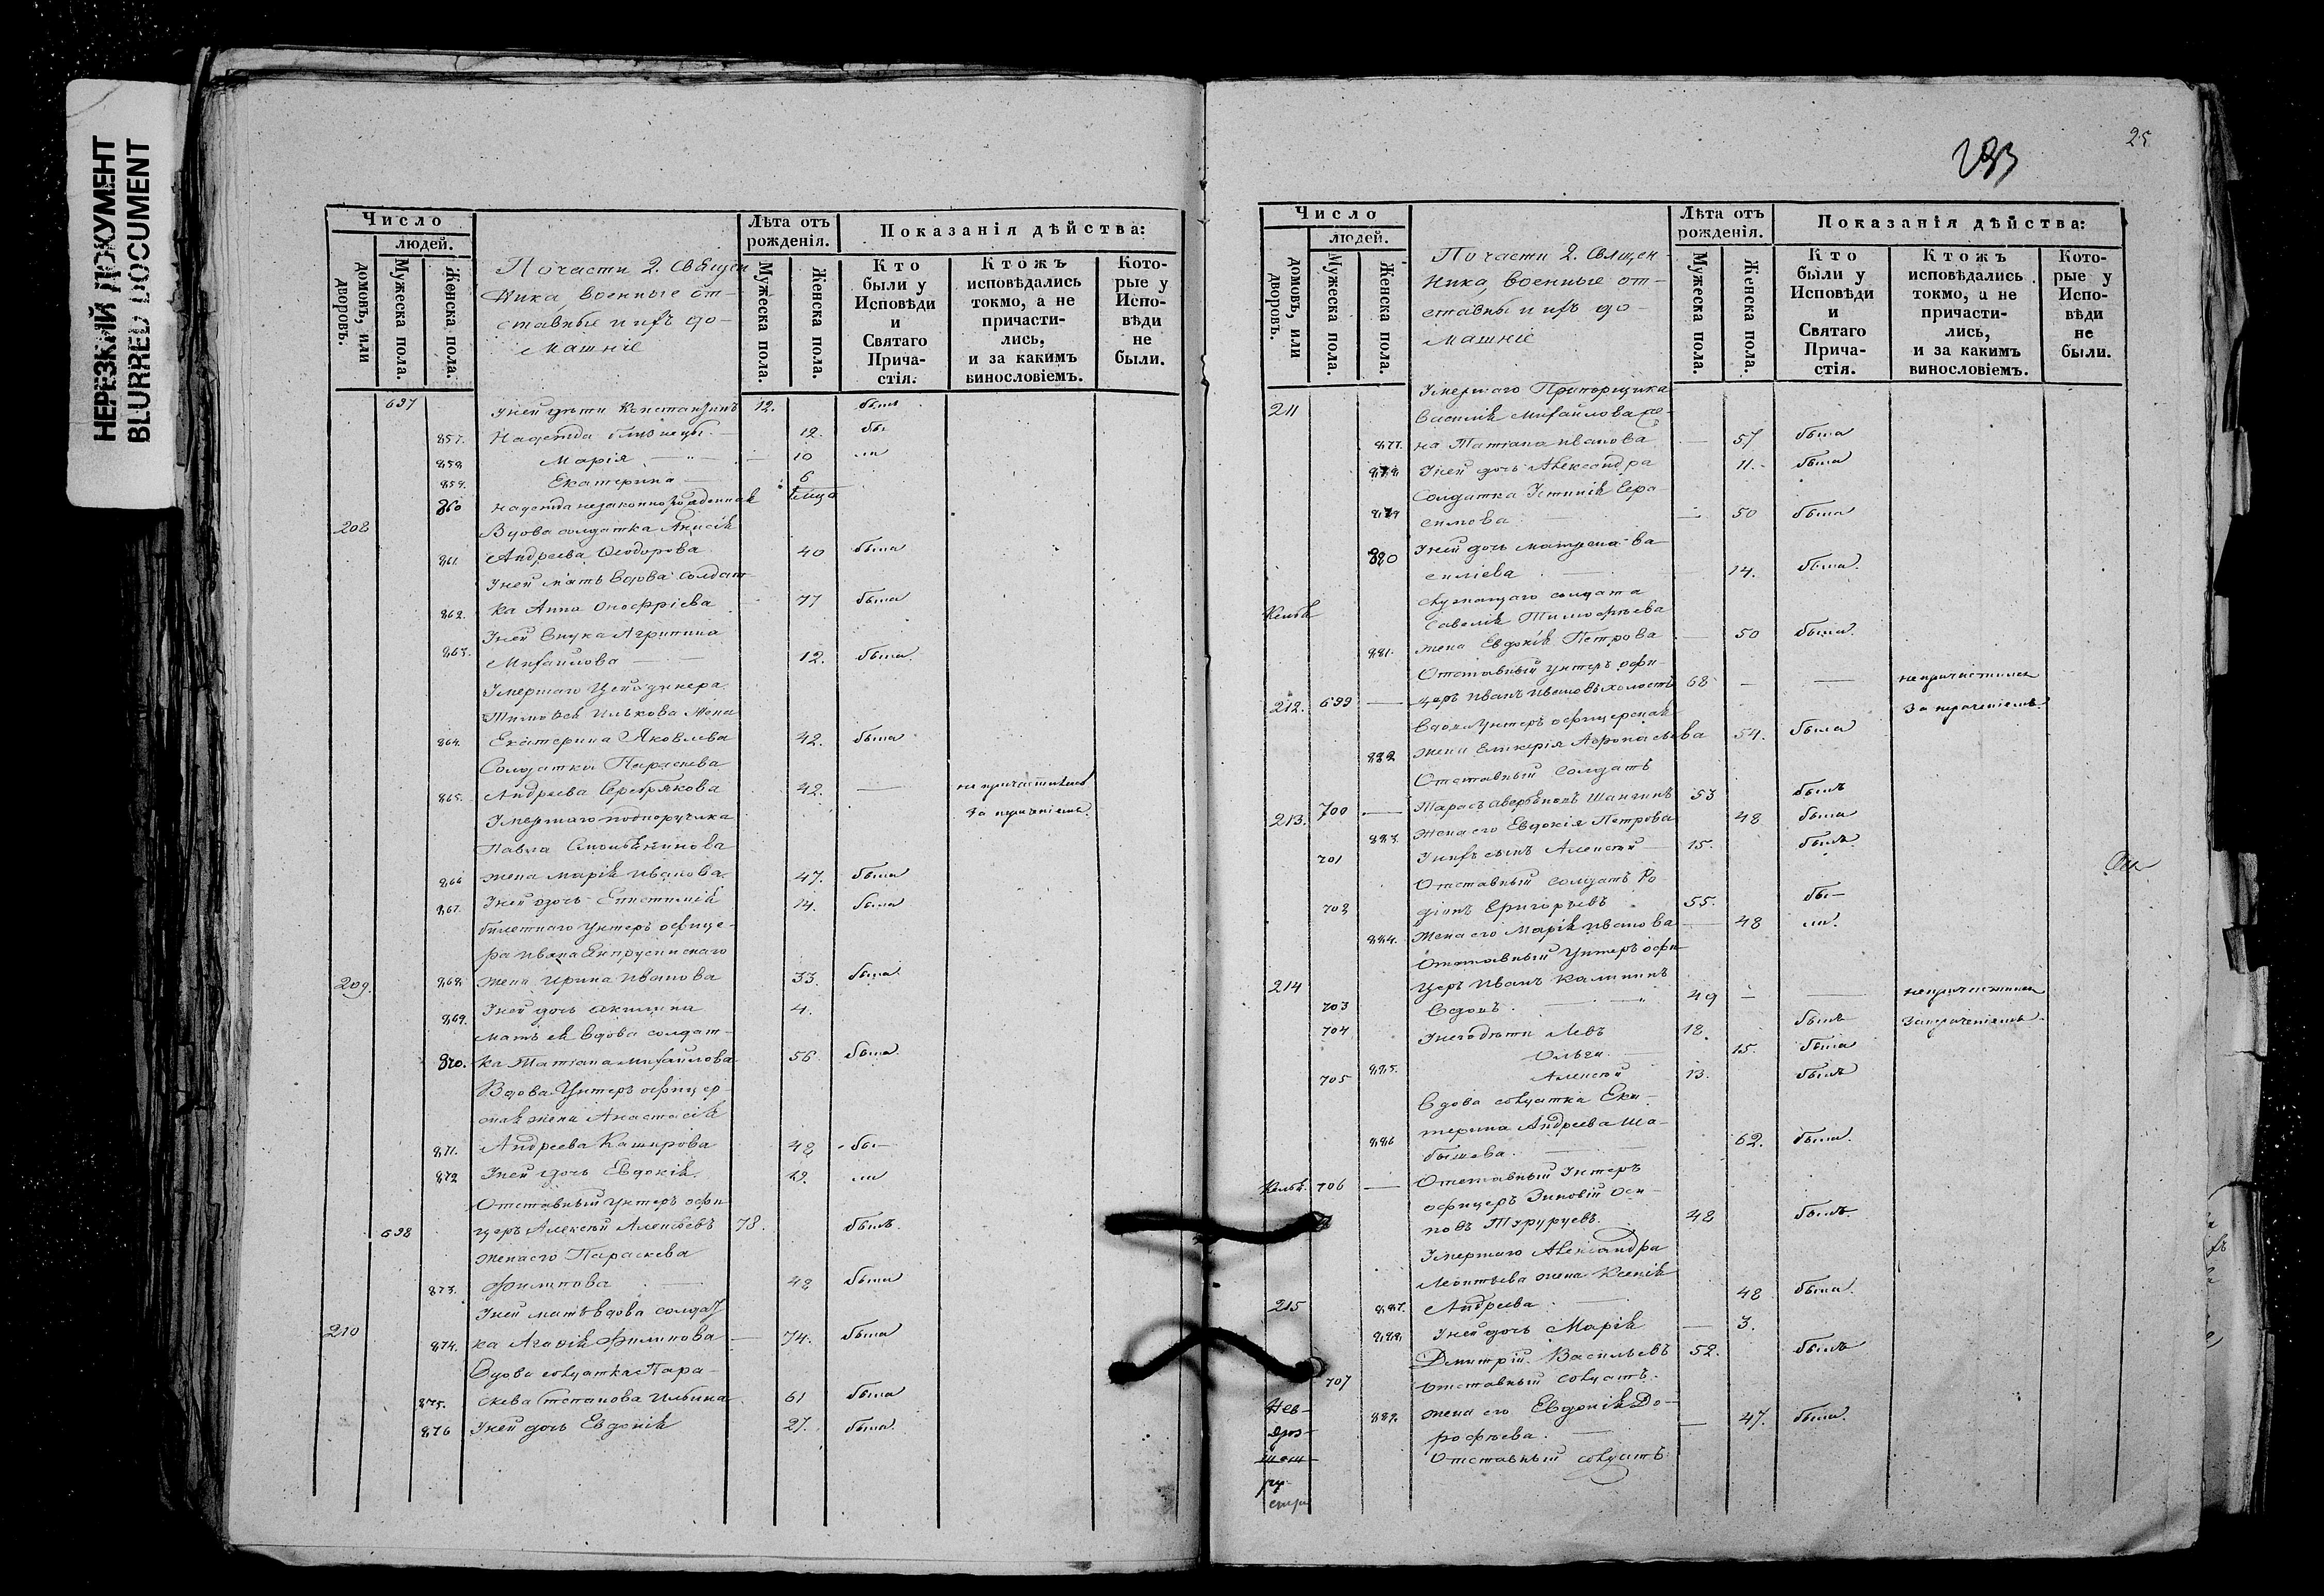 НЕРЕЗКИЙ ДОКУМЕНТ
BLURRED DOCUMENT
Число
людей.
домовъ, или дворовъ.
Мужеска пола.
Женска пола.
По части 2. Священ
ника, военные от-
ставные и ихъ до-
машніе
Лѣта отъ рожденія.
Мужеска пола.
Женска пола.
Показанія дѣйства:
Кто были у Исповѣди и Святаго Прича- стія.
Ктожъ исповѣдались токмо, а не причасти- лись, и за какимъ винословіемъ.
Кото- рые у Испо- вѣди не были.
697 У ней дѣти Константинъ 12. былъ
857. Надежда близнецы. — 12. бы-
858 Марія — " — 10 ли
859. Екатерина — 6
860 Надежда незаконнорожденная
208 Вдова солдатка Анисія
861. Андреева Ѳеодорова 40 была
У ней мать вдова солдат-
862. ка Анна Онофріева 77 была
У ней внука Агрипина
863. Михайлова — 12. была
Умершаго
Илькова жена
864. Екатерина Яковлева 42. была
Солдатка Параскева
865. Андреева Серебрякова 42. — не причастилась
за нерачѣніемъ.
Умершаго подпоручика
Павла
866 жена Марія Иванова 47. была
867. У ней дочь Епистимія 14. была
билетнаго Унтеръ офице-
ра Ивана
209. 868. жена Ирина Иванова 33. была
869. У ней дочь Акилина 4.
мать ея вдова солдат-
870. ка Татіана Михайлова 56 была
Вдова Унтеръ офицер-
ская жена Анастасія
871. Андреева Каширова 48 бы-
872 У ней дочь Евдокія 19. ли
Отставный унтеръ офи-
698 церъ Алексѣй Алексѣевъ 78. былъ.
жена его Параскева
873. Филипова — 48 была
У ней мать вдова солдат-
210 874. ка Агафія Филипова — 74. была
Вдова солдатка Пара-
875. скева Степанова Ильина 61 была
876 У ней дочь Евдокія 27. была.
25
233
Число
людей.
домовъ, или дворовъ.
Мужеска пола.
Женска пола.
По части 2. Священ-
ника, военные от-
ставны и ихъ до-
машніе
Лѣта отъ рожденія.
Мужеска пола.
Женска пола.
Показанія дѣйства:
Кто были у Исповѣди и Святаго Прича- стія.
Ктожъ исповѣдались токмо, а не причасти- лись, и за какимъ винословіемъ.
Кото- рые у Испо- вѣди не были.
Умершаго Прапорщика
211 Василія Михайлова же-
877. на Татіана Иванова — 57 была
878. У ней дочь Александра 11. была
Солдатка Устинія Гера-
879 симова — 50 была
880 У ней дочь Матрена Ва-
силіева — 14. была.
служащаго солдата
Келья Савелія Тимофѣева
881. жена Евдокія Петрова — 50 была.
Отставный унтеръ офи-
212. 699 — церъ Иванъ Ивановъ холостъ 68 — — не причастился
за нерачѣніемъ.
вдова Унтеръ офицерская
882 жена Гликерія Афонасьева 54. была
Отставный солдатъ
213. 700 — Тарасъ Аверьяновъ Шангинъ 53 былъ
883. Жена его Евдокія Петрова 48 была
701 У нихъ сынъ Алексѣй 15. былъ
Отставный солдатъ Ро-
702 діонъ Григорьевъ 55. бы-
884. Жена его Марія Иванова — 48 ли.
Отставный Унтеръ офи-
214 церъ Иванъ Калининъ
703 вдовъ. 49 — — не причастился
704 У него дѣти Левъ 18. былъ за нерачѣніемъ.
885. Ольга 15. была
705 Алексѣй 13. былъ
вдова солдатка Ека-
886 терина Андреева Ша-
бышева. — 62. была.
Келья. 706 — Отставный Унтеръ
офицеръ Зиновій Оси-
повъ Туруруевъ. 48 былъ.
Умершаго Александра
Леонтьева жена Ксенія
215 887. Андреева — 48 была.
888. У ней дочь Марія — 3.
Димитрій Васильевъ 52. былъ
707 отставный солдатъ.
889. жена его Евдокія До-
рофѣева. — 47. была.
Отставный солдатъ